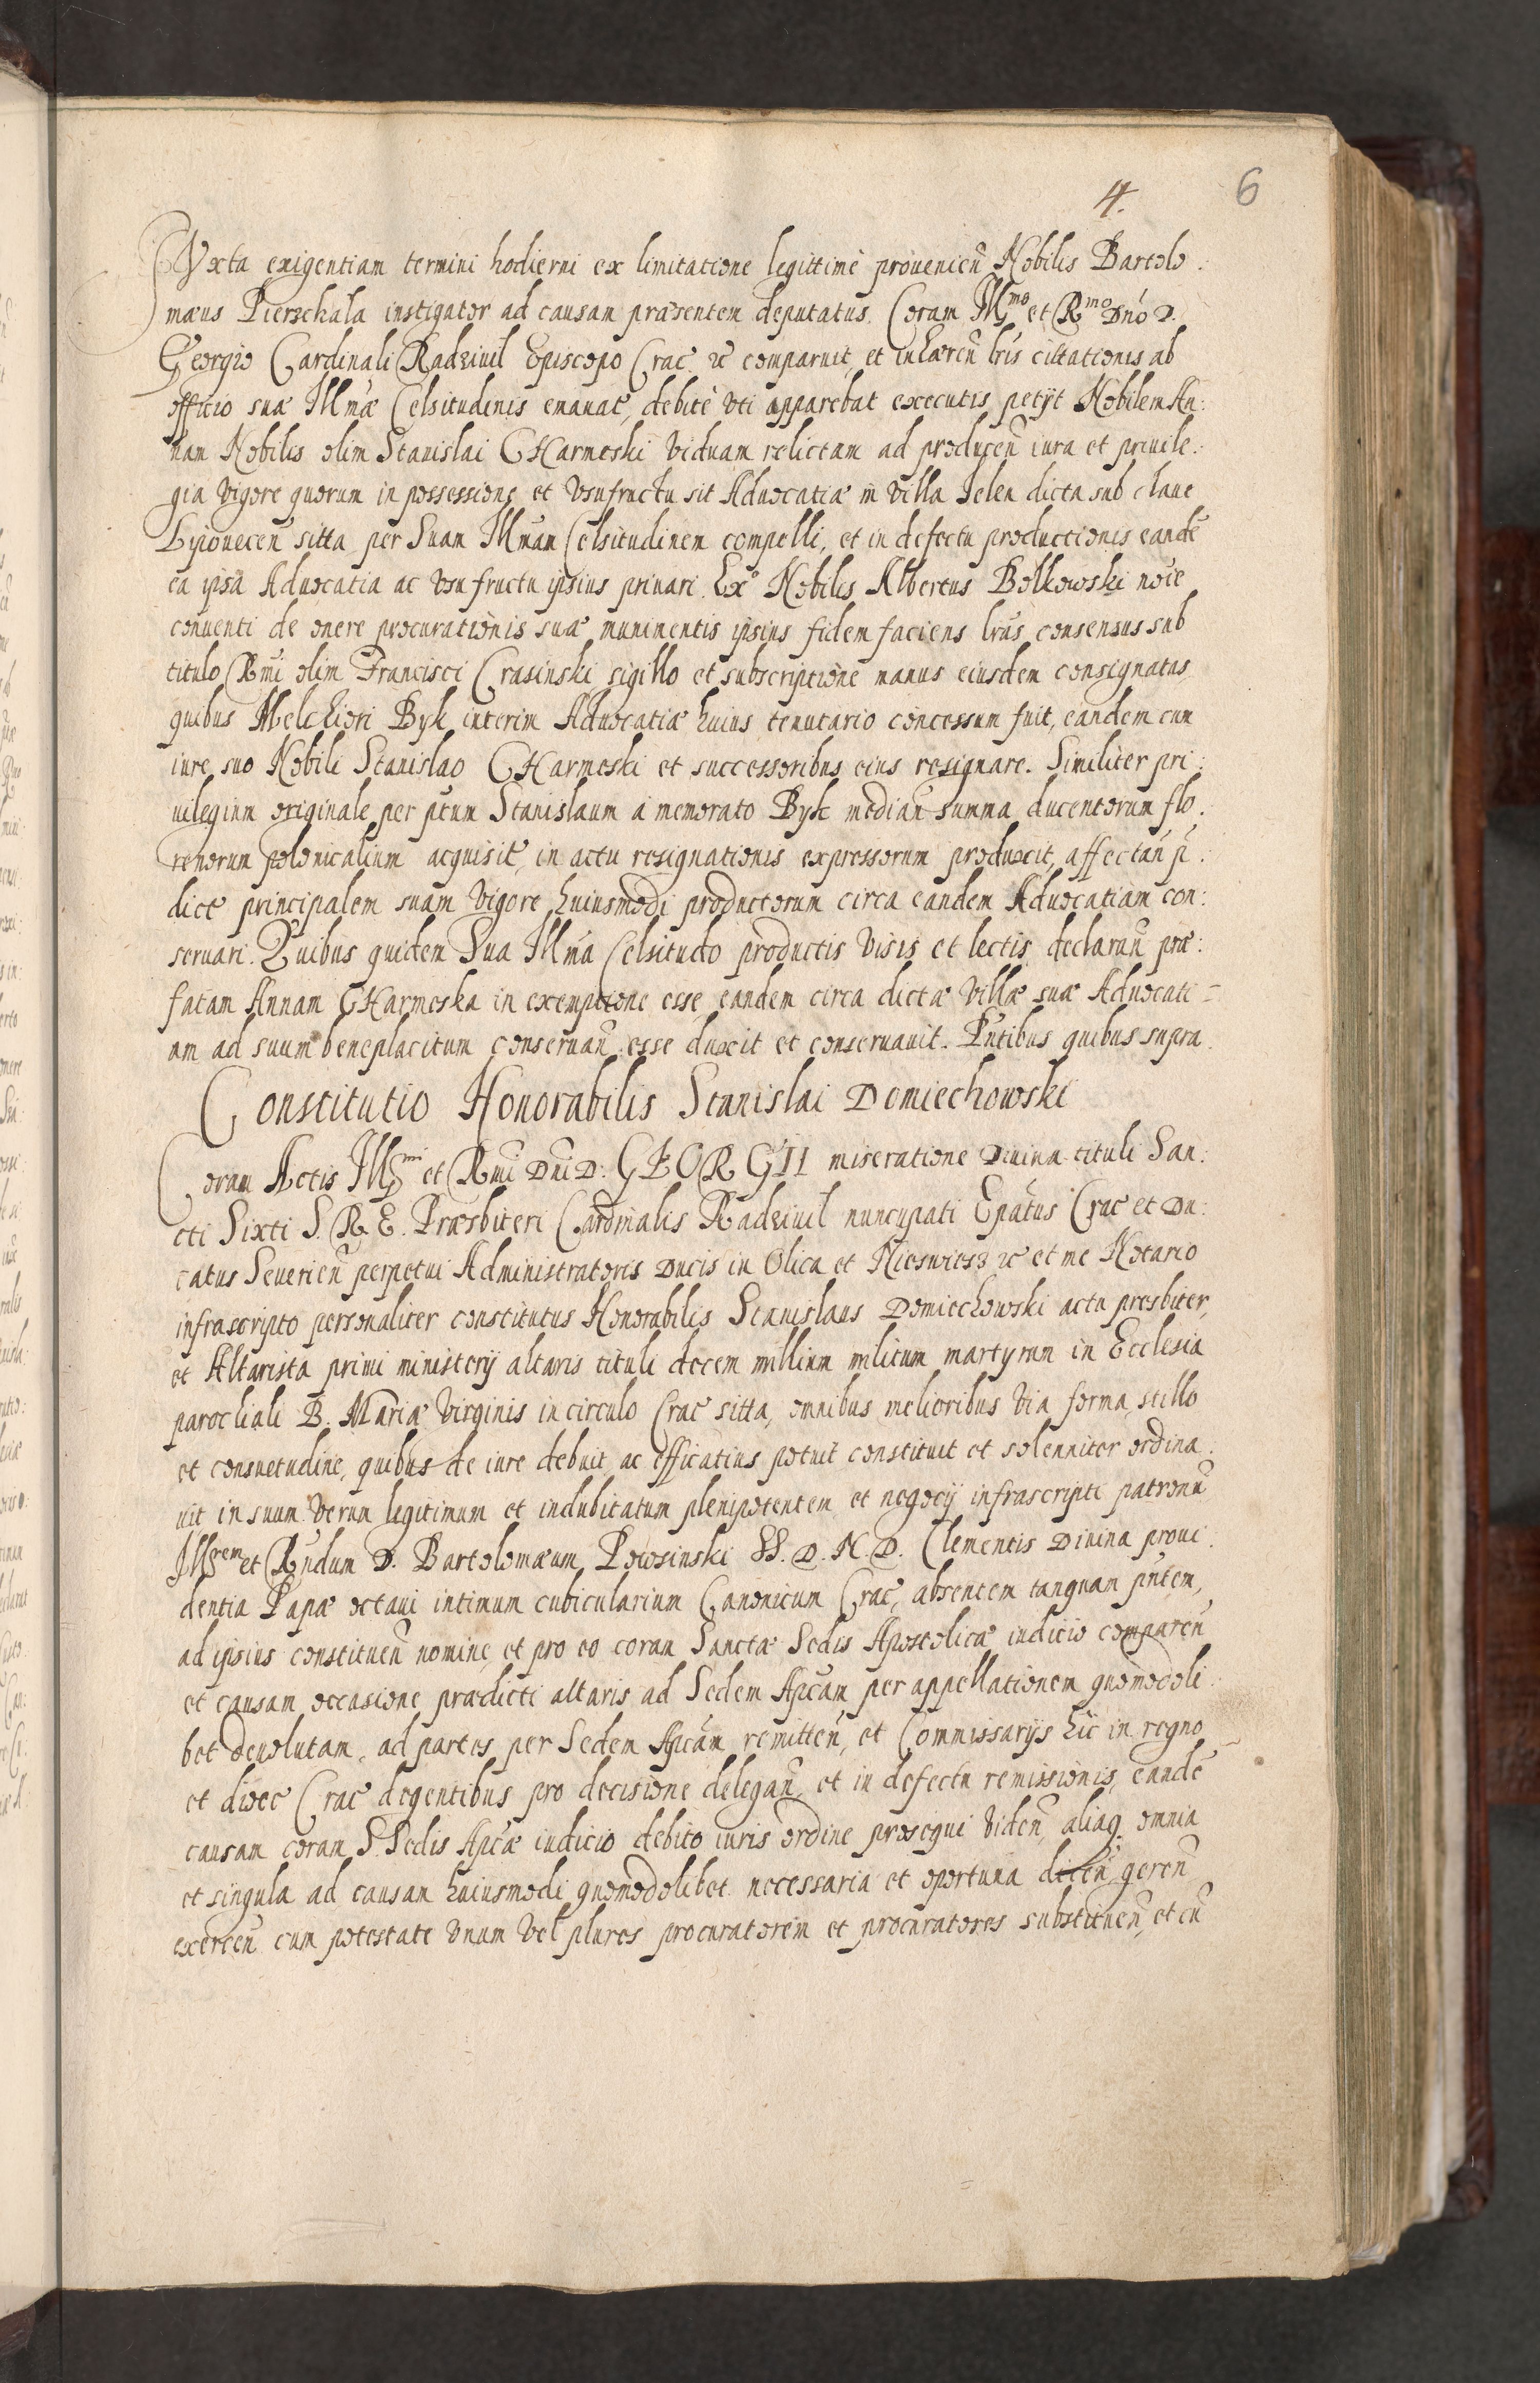 4.
6
Iuxta exigentiam termini hodierni ex limitatione legittimè prouenieñ Nobilis Bartolo:
mæus Pierzchała instigator ad causam præsentem deputatus. Coram Illmo et Rmo Dnó D.
Georgio Cardinali Radziuil Episcopo Crac̄ &c comparuit, et inhæreñ lris cittationis ab
officio suæ Illmæ Celsitudinis emanat̄, debitè vti apparebat executis petijt Nobilem An:
nam Nobilis olim Stanislai CHarmeski viduam relictam ad produceñ iura et priuile:
gia vigore quorum in possessione et vsufructu sit Aduocatiæ in villa Jelen dicta sub claue
Lipouecen̄ sitta per Suam Illmam Celsitudinem compelli, et in defectu productionis eandē
ea ipsa Aduocatia ac vsufructu ipsius priuari. Exo Nobilis Albertus Bolkowski noīe
conuenti de onere procurationis suæ munimentis ipsius fidem faciens lras consensus sub
titulo Rmi olim Francisci Crasinski sigillo et subscriptione manus eiusdem consignatas
quibus Melchiori Byk interim Aduocatiæ huius tenutario concessum fuit, eandem cum
iure suo Nobili Stanislao CHarmeski et successoribus eius resignare. Similiter pri:
uilegium originale per ptum Stanislaum à memorato Byk median̄ summa ducentorum flo:
renorum polonicalium acquisit̄, in actu resignationis expressorum produxit, affectan̄ p̄:
dict̄ principalem suam vigore huiusmodi productorum circa eandem Aduocatiam con:
seruari. Quibus quidem Sua Illma Celsitudo productis visis et lectis declaran̄ præ:
fatam Annam CHarmeska in exemptione esse, eandem circa dictæ villæ suæ Aduocati=
am ad suum beneplacitum conseruan̄ esse duxit et conseruauit. Pñtibus quibus supra.
Constitutio Honorabilis Stanislai Domiechowski
Coram Actis Illmi et Rmi Dni D: GEORGII miseratione Diuina tituli San:
cti Sixti S. R. E. Præsbiteri Cardinalis Radziuil nuncupati Epatus Crac̄ et Du:
catus Seuerien̄ perpetui Administratoris Ducis in Olica et Nieswiesz &c et me Notario
infrascripto personaliter constitutus Honorabilis Stanislaus Domiechowski actu presbiter,
et Altarista primi ministerij altaris tituli decem millium militum martyrum in Ecclesia
parochiali B. Mariæ Virginis in circulo Crac̄ sitta, omnibus melioribus via forma, stillo
et consuetudine, quibus de iure debuit ac efficatius potuit constituit et solenniter ordina:
uit in suum verum legitimum et indubitatum plenipotentem et negocij infrascripti patronū
Illrem et Rndum D. Bartolomæum Powsinski SS. D. N. D. Clementis Diuina proui:
dentia Papæ octaui intimum cubicularium Canonicum Crac̄, absentem tanquam pñtem,
ad ipsius constituen̄ nomine et pro eo coram Sanctæ Sedis Apostolicæ iudicio comparen̄
et causam occasione prædicti altaris ad Sedem Apcam per appellationem quomodoli:
bet deuolutam, ad partes per Sedem Apcam remitten̄, et Commissarijs hic in regno
et dioec̄ Crac̄ degentibus pro decisione delegan̄, et in defectu remissionis, eandē
causam coram S. Sedis Apcæ iudicio debito iuris ordine prosequi viden̄ aliaq̄ omnia
et singula ad causam huiusmodi quomodolibet necessaria et oportuna dicen̄ geren̄
exercen̄ cum potestate vnum vel plures procuratorem et procuratores substituen̄, et cū